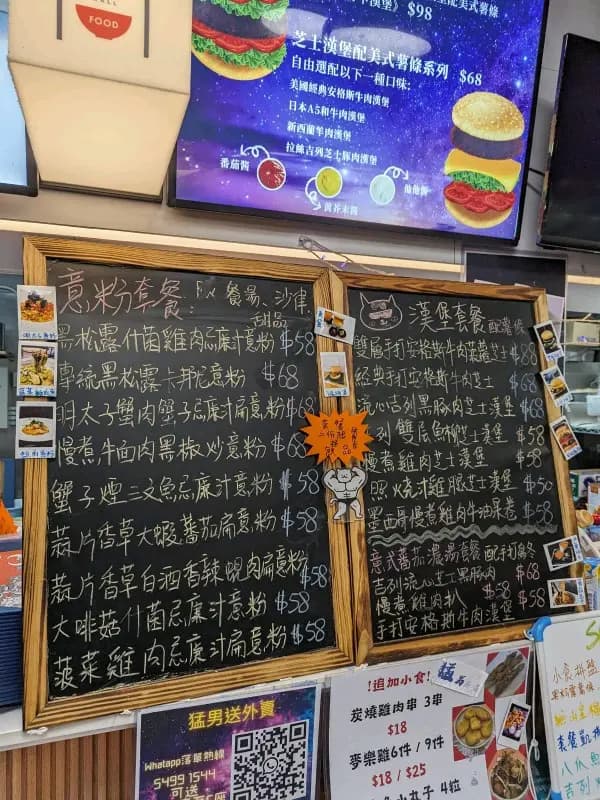 FOOD
漢堡》 $98
美式薯條
芝士漢堡配美式薯條系列 $68
自由選配以下一種口味:
美國經典安格斯牛肉漢堡
日本A5和牛肉漢堡
新西蘭羊肉漢堡
拉絲吉列芝士豚肉漢堡
番茄醬
黃芥末醬
他他醬
意粉套餐: 餐湯、沙律,
甜品
黑松露什菌雞肉忌廉汁意粉 $58
傳統黑松露卡邦尼意粉 $68
明太子蟹肉蟹子忌廉汁扁意粉 $68
慢煮牛面肉黑椒炒意粉 $68
蟹子煙三文魚忌廉汁意粉 $58
蒜片香草大蝦蕃茄扁意粉 $58
蒜片香草白酒香辣蜆肉扁意粉 $58
大啡菇什菌忌廉汁意粉 $58
菠菜雞肉忌廉汁扁意粉 $58
漢堡套餐 配薯條
雙層手打安格斯牛肉菠蘿芝士 $88
經典手打安格斯牛肉芝士 $68
流心吉列黑豚肉芝士漢堡 $68
吉列雙層魚柳芝士漢堡 $58
慢煮雞肉芝士漢堡 $58
照燒汁雞腿芝士漢堡 $50
墨西哥慢煮雞肉牛油果卷 $58
意式蕃茄濃湯套餐
吉列流心芝士黑豚肉 $68
慢煮雞肉扒 $58
手打安格斯牛肉漢堡 $58
猛男送外賣
Whatapp落單熱線
5499 1544
可送
!追加小食!
炭燒雞肉串 3串
$18
麥樂雞6件 / 9件
$18 / $25
小丸子 4粒
小食拼盤